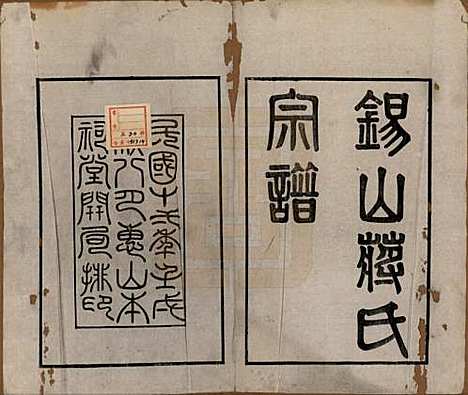 錫山蔣氏
宗譜
民國十弌年壬戌
八月惠山本
祠堂開局排印